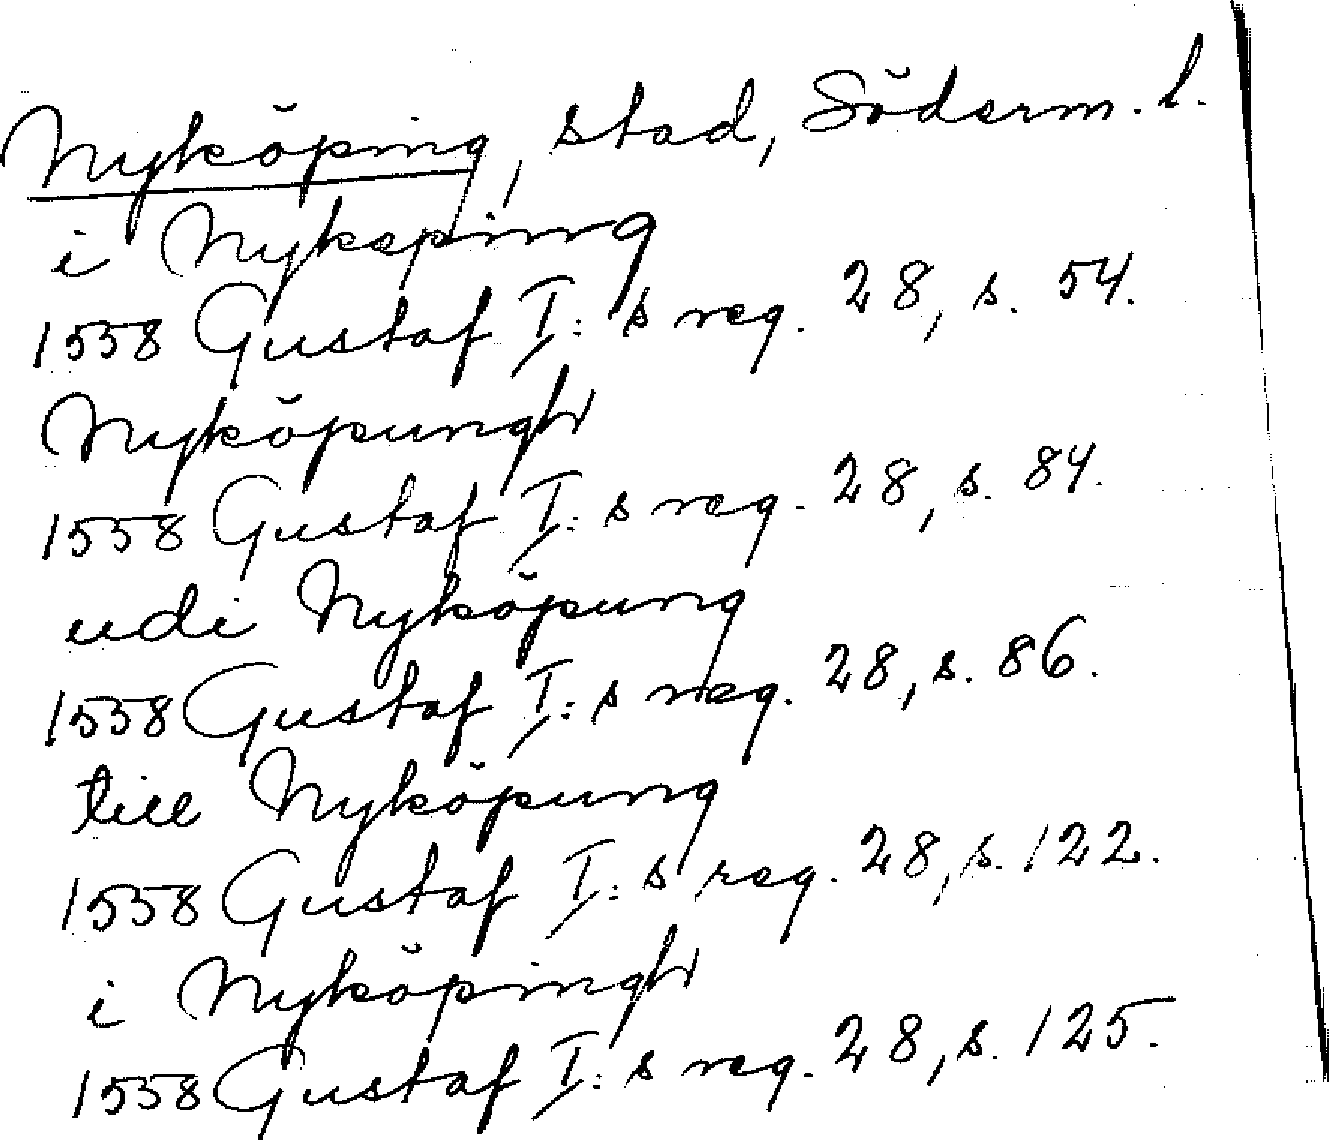 Nyköping, stad, Söderm. l.
i Nykepinng
1558 Gustaf I:s reg. 28, s. 54.
Nyköpungh
1558 Gustaf I:s reg. 28, s. 84.
udi Nyköpung
1558 Gustaf I:s reg. 28, s. 86.
till Nyköpung
1558 Gustaf I:s reg. 28, s. 122.
i Nyköpingh
1558 Gustaf I:s reg. 28, s. 125.